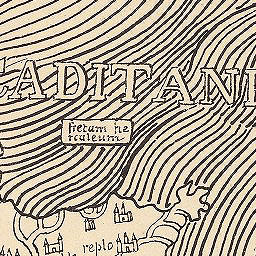 GADITANI
fretum he
rculeum
replo